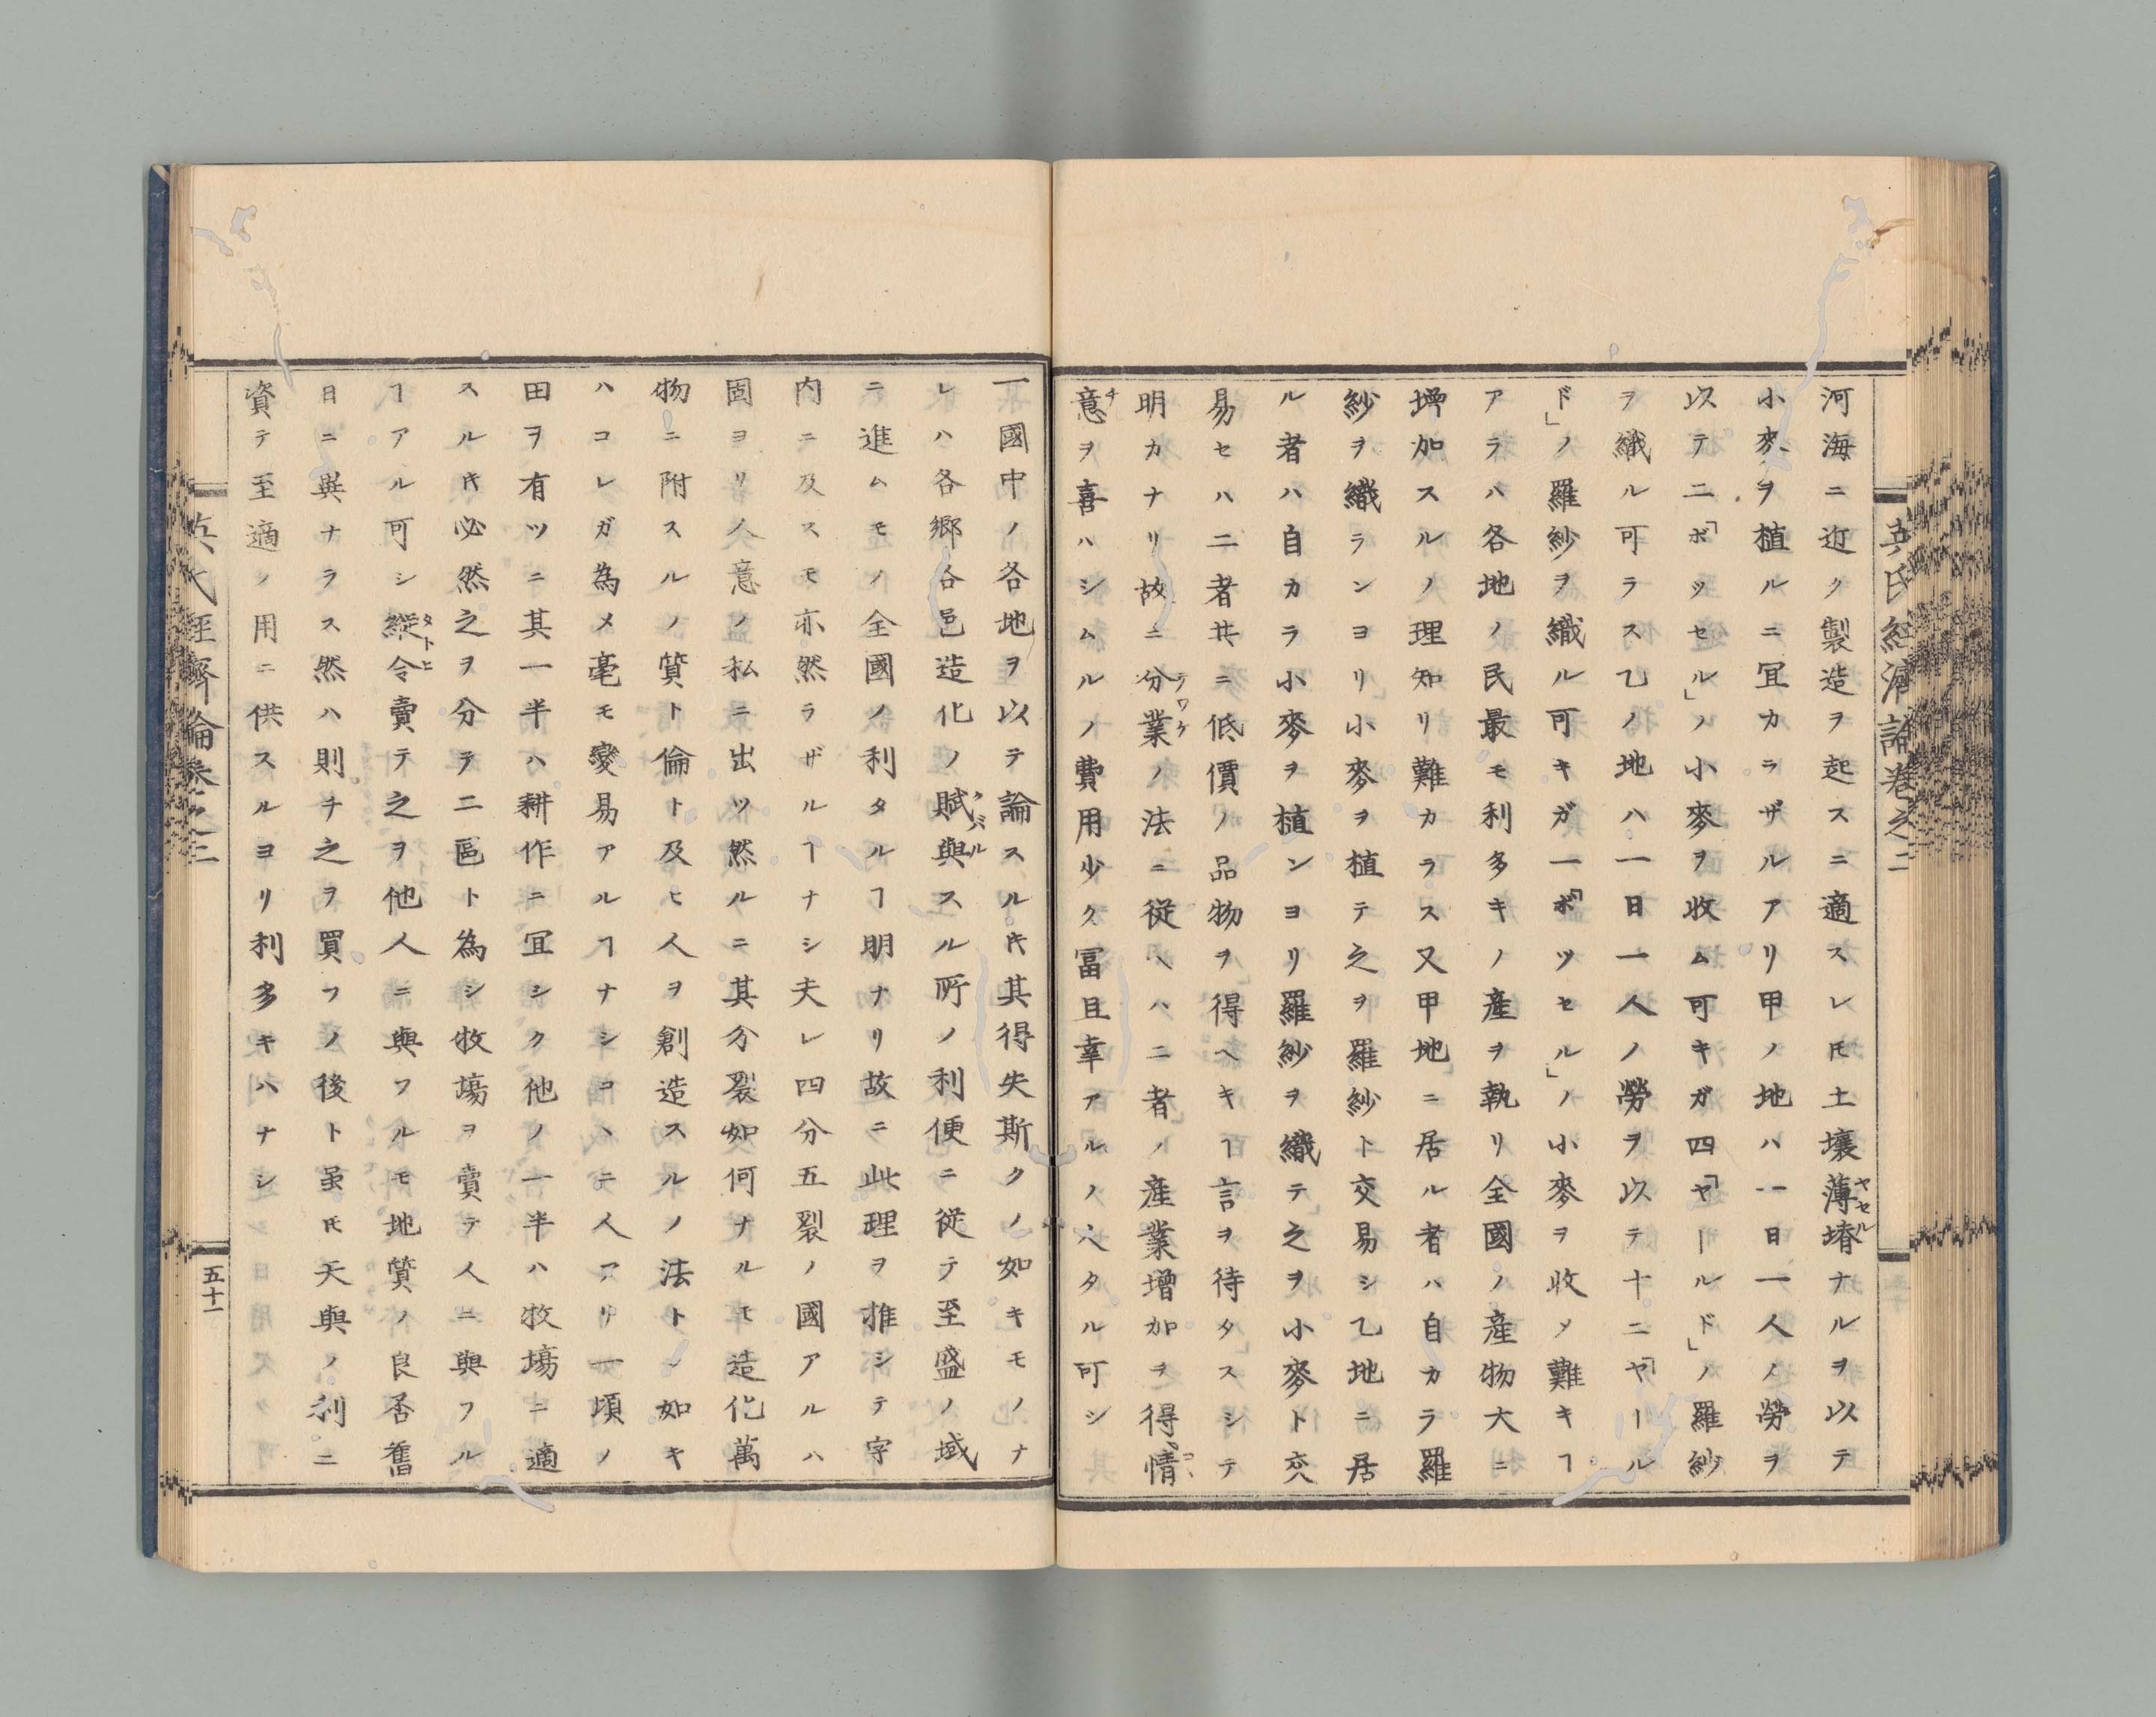 河海ニ近ク製造ヲ起スニ適スレ𪜈土壤薄瘠ナルヲ以テ
小麥ヲ植ルニ冝カラザルアリ甲ノ地ハ一日一人ノ勞ヲ
以テ二「ボッセル」ノ小麥ヲ收ム可キガ四「ヤールド」ノ羅紗
ヲ織ル可ラス乙ノ地ハ一日一人ノ勞ヲ以テ十二「ヤール
ド」ノ羅紗ヲ織ル可キガ一「ボッセル」ノ小麥ヲ收メ難キヿ
アラハ各地ノ民最モ利多キノ産ヲ執リ全國ノ産物大ニ
增加スルノ理知リ難カラス又甲地ニ居ル者ハ自カラ羅
紗ヲ織ランヨリ小麥ヲ植テ之ヲ羅紗ト交易シ乙地ニ居
ル者ハ自カラ小麥ヲ植ンヨリ羅紗ヲ織テ之ヲ小麥ト交
易セハ二者共ニ低價ノ品物ヲ得ヘキヿ言ヲ待タスシテ
明カナリ故ニ分業ノ法ニ從ヘハ二者ノ産業增加ヲ得情
意ヲ喜ハシムルノ費用少ク冨且幸アルノ人タル可シ
一國中ノ各地ヲ以テ論スル𪜈其得失斯クノ如キモノナ
レハ各郷各邑造化ノ賦與スル所ノ利便ニ從テ至盛ノ域
ニ進ムモノ全國ノ利タルヿ明ナリ故ニ此理ヲ推シテ宇
内ニ及スモ亦然ラザルヿナシ夫レ四分五裂ノ國アルハ
固ヨリ人意ノ私ニ出ツ然ルニ其分裂如何ナルモ造化萬
物ニ附スルノ質ト倫ト及ヒ人ヲ創造スルノ法トノ如キ
ハコレガ為メ毫モ變易アルヿナシコヽニ人アリ一頃ノ
田ヲ有ツニ其一半ハ耕作ニ冝シク他ノ一半ハ牧塲ニ適
スル𪜈必然之ヲ分テ二區ト為シ牧塲ヲ賣テ人ニ與フル
ヿアル可シ縱令賣テ之ヲ他人ニ與フルモ地質ノ良否舊
日ニ異ナラス然ハ則チ之ヲ買フノ後ト虽𪜈天與ノ利ニ
資テ至適ノ用ニ供スルヨリ利多キハナシ
五十一